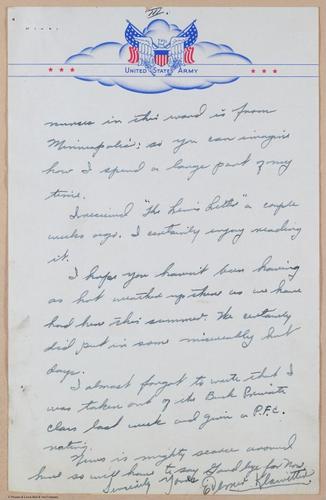 IV.
UNITED STATES ARMY
nurses in this ward is from
Minneapolis: so you can imagine
how I spend a large part of my
time.
I received "The Lewis Letter" a couple
weeks ago. I certainly enjoy reading
it.
I hope you haven't been having
as hot weather up there as we have
had here this summer. We certainly
did put in some miserably hot
days.
I almost forgot to write that I
was taken out of the Buck Private
class last week and given a P.F.C.
rating.
News is mighty scarce around
here so will have to say Goodbye for Now
Sincerely Yours